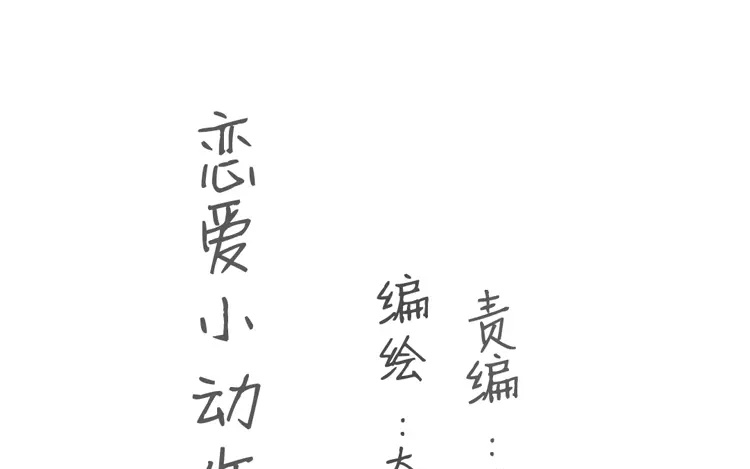 恋爱小动
编绘：
责编：